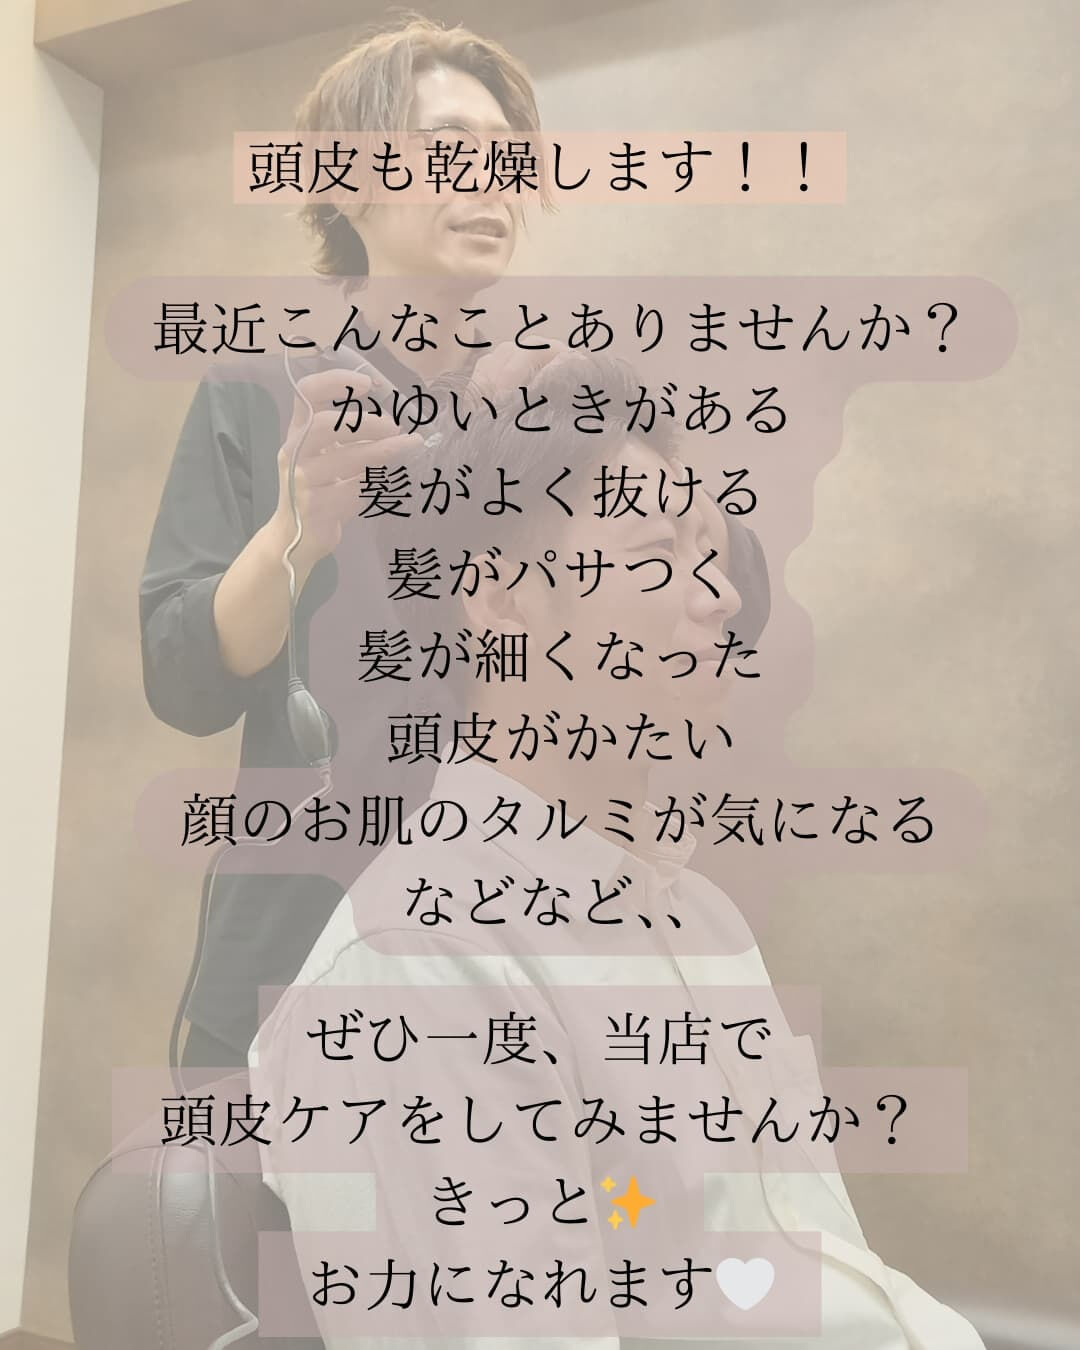 頭皮も乾燥します！！
最近こんなことありませんか？
かゆいときがある
髪がよく抜ける
髪がパサつく
髪が細くなった
頭皮がかたい
顔のお肌のタルミが気になる
などなど、、
ぜひ一度、当店で
頭皮ケアをしてみませんか？
きっと✨
お力になれます🤍